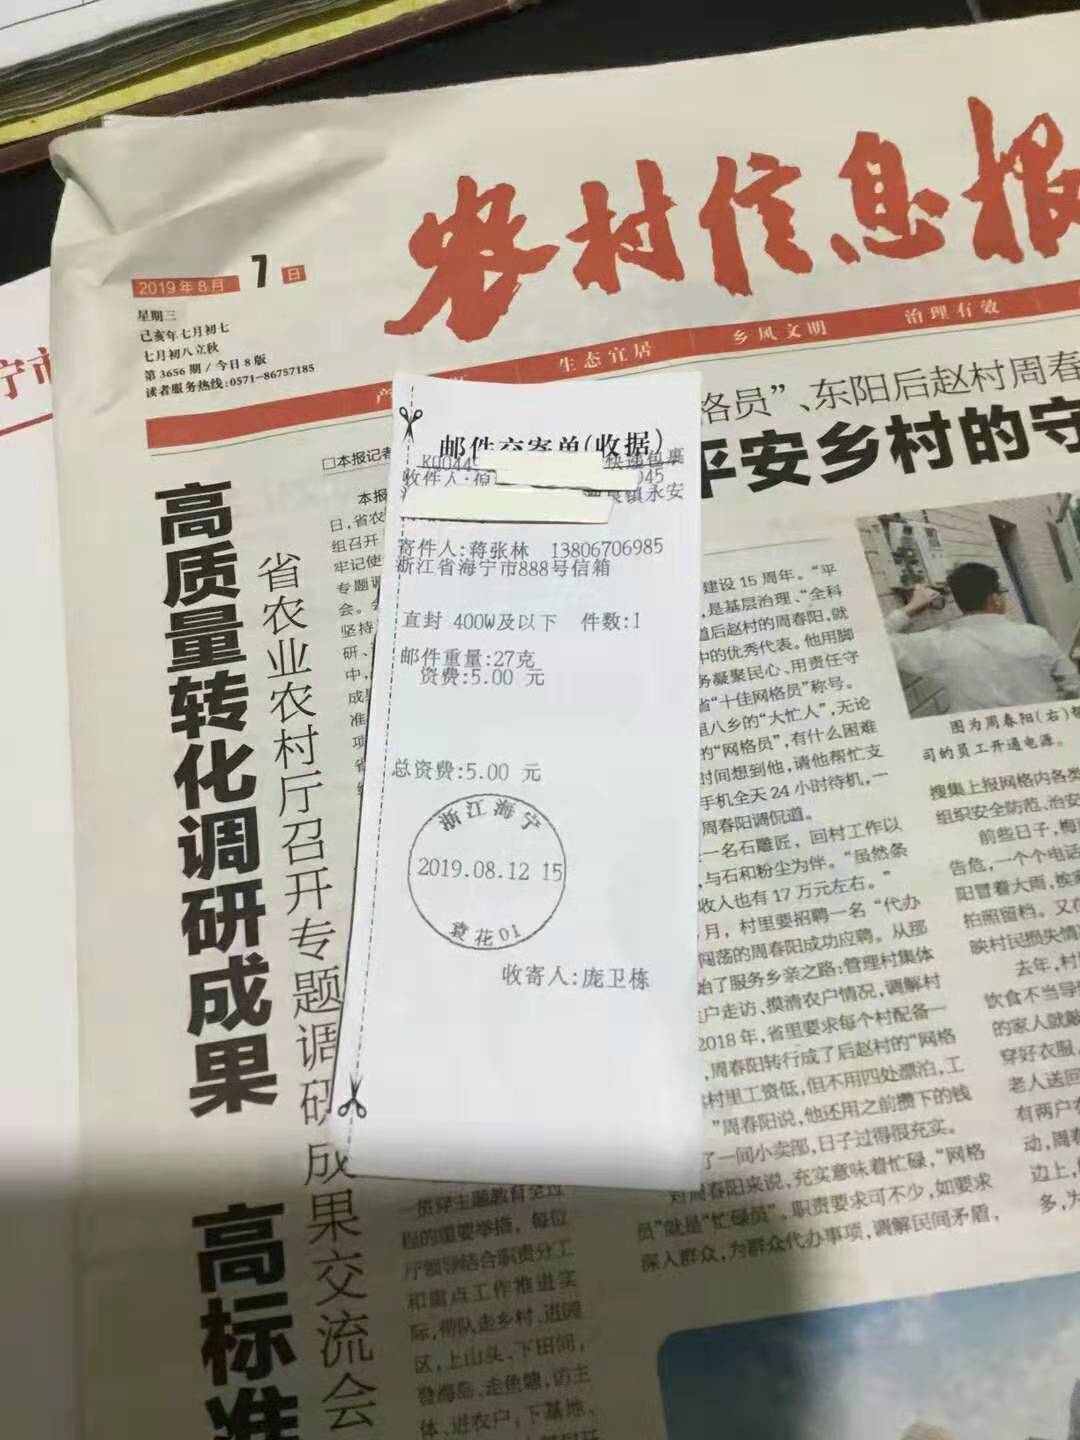 农村信息报
2019年8月7日
星期三
己亥年七月初七
七月初八立秋
第3656期/今日8版
读者服务热线:0571-86757185
生态宜居
乡风文明
治理有效
格员”、东阳后赵村周春
平安乡村的守
□本报记者
高质量转化调研成果 高标准
省农业农村厅召开专题调研成果交流会
邮件交寄单(收据)
快递包裹
收件人:
镇永安
寄件人:蒋张林 13806706985
浙江省海宁市888号信箱
直封 400W及以下 件数:1
邮件重量:27克
资费:5.00 元
总资费:5.00 元
浙江海宁
2019.08.12 15
花01
收寄人:庞卫栋
建设15周年。“平
,是基层治理、“全科
道后赵村的周春阳,就
中的优秀代表。他用脚
务凝聚民心、用责任守
省“十佳网格员”称号。
里八乡的“大忙人”,无论
的“网格员”,有什么困难
时间想到他,请他帮忙支
手机全天24小时待机,一
周春阳调侃道。
一名石雕匠,回村工作以
,与石和粉尘为伴。“虽然条
收入也有17万元左右。”
月,村里要招聘一名“代办
闯荡的周春阳成功应聘。从那
始了服务乡亲之路:管理村集体
户走访、摸清农户情况,调解村
2018年,省里要求每个村配备一
,周春阳转行成了后赵村的“网格
村里工资低,但不用四处漂泊,工
”周春阳说,他还用之前攒下的钱
了一间小卖部,日子过得很充实。
对周春阳来说,充实意味着忙碌,“网格
员”就是“忙碌员”。职责要求可不少,如要求
深入群众,为群众代办事项,调解民间矛盾,
图为周春阳(右)帮
司的员工开通电源。
搜集上报网格内各类
组织安全防范、治安
前些日子,梅
告危,一个个电话
阳冒着大雨,挨家
拍照留档。又在
映村民损失情
去年,村
饮食不当导
的家人就敲
穿好衣服,
老人送回
有两户
动,周春
边上,
多,为
贯穿主题教育全过
程的重要举措,每位
厅领导结合职责分工
和重点工作推进实
际,带队走乡村、进园
区,上山头、下田间,
登海岛、走鱼塘,访主
体、进农户,下基地、